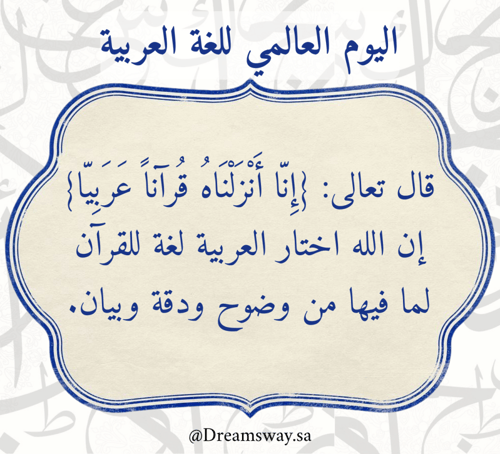 اليوم العالمي للغة العربية
قال تعالى: {إِنّا أَنْزَلْنَاهُ قُرآناً عَرَبِيّا}
إن الله اختار العربية لغة للقرآن
لما فيها من وضوح ودقة وبيان.
@Dreamsway.sa